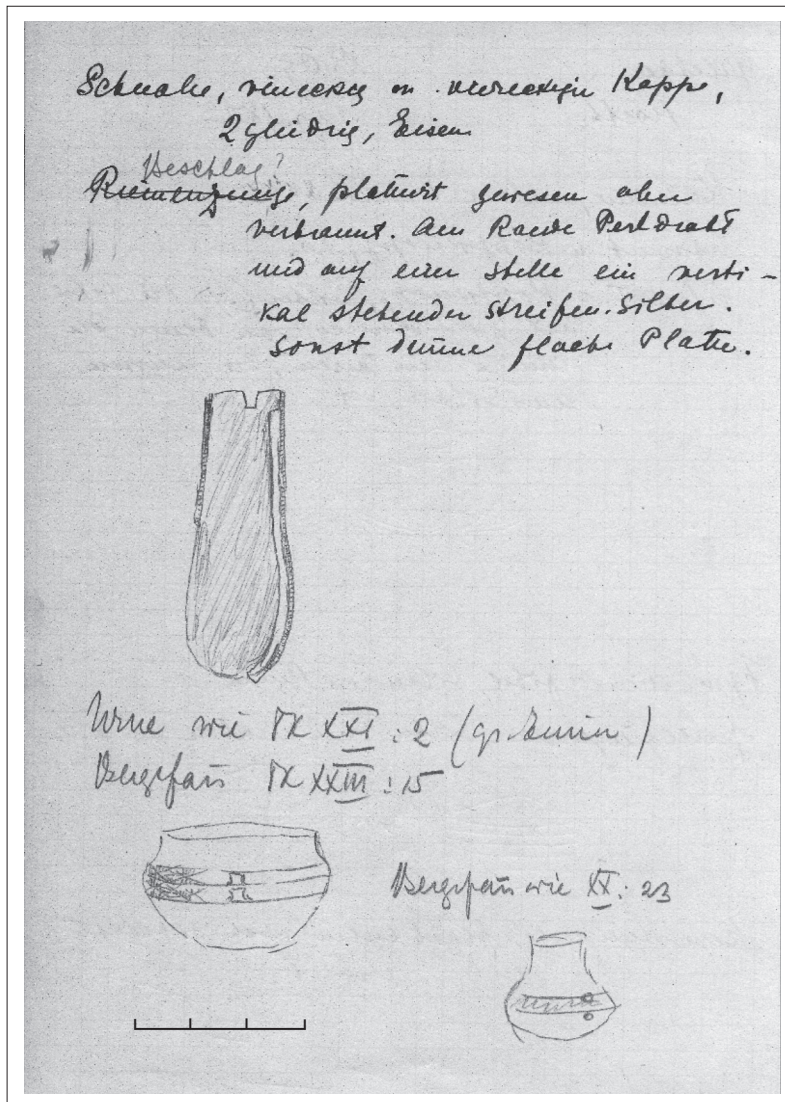 Schnalle, viereckig m. viereckiger Kappe,
2 gliedrig, Eisen
Beschlag?
Riemenzunge, plattiert gewesen aber
verbrannt. Am Rande Perldraht
und auf einer Stelle ein verti-
kal stehender Streifen. Silber.
Sonst dünne flache Platte.
Urne wie XXI : 2 (gr.
XXIII : 15
wie XX : 23